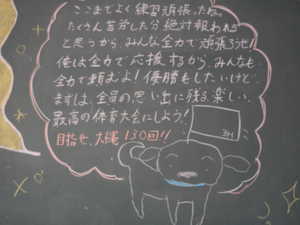 ここまでよく練習頑張ったね。
たくさん苦労した分絶対報われる
と思うから、みんな全力で頑張ろうぜ!
俺は全力で応援するから、みんなも
全力で頼むよ!優勝もしたいけど、
まずは、全員の思い出に残る、楽しい、
最高の体育大会にしよう!
目指せ、大縄130回!!
3H